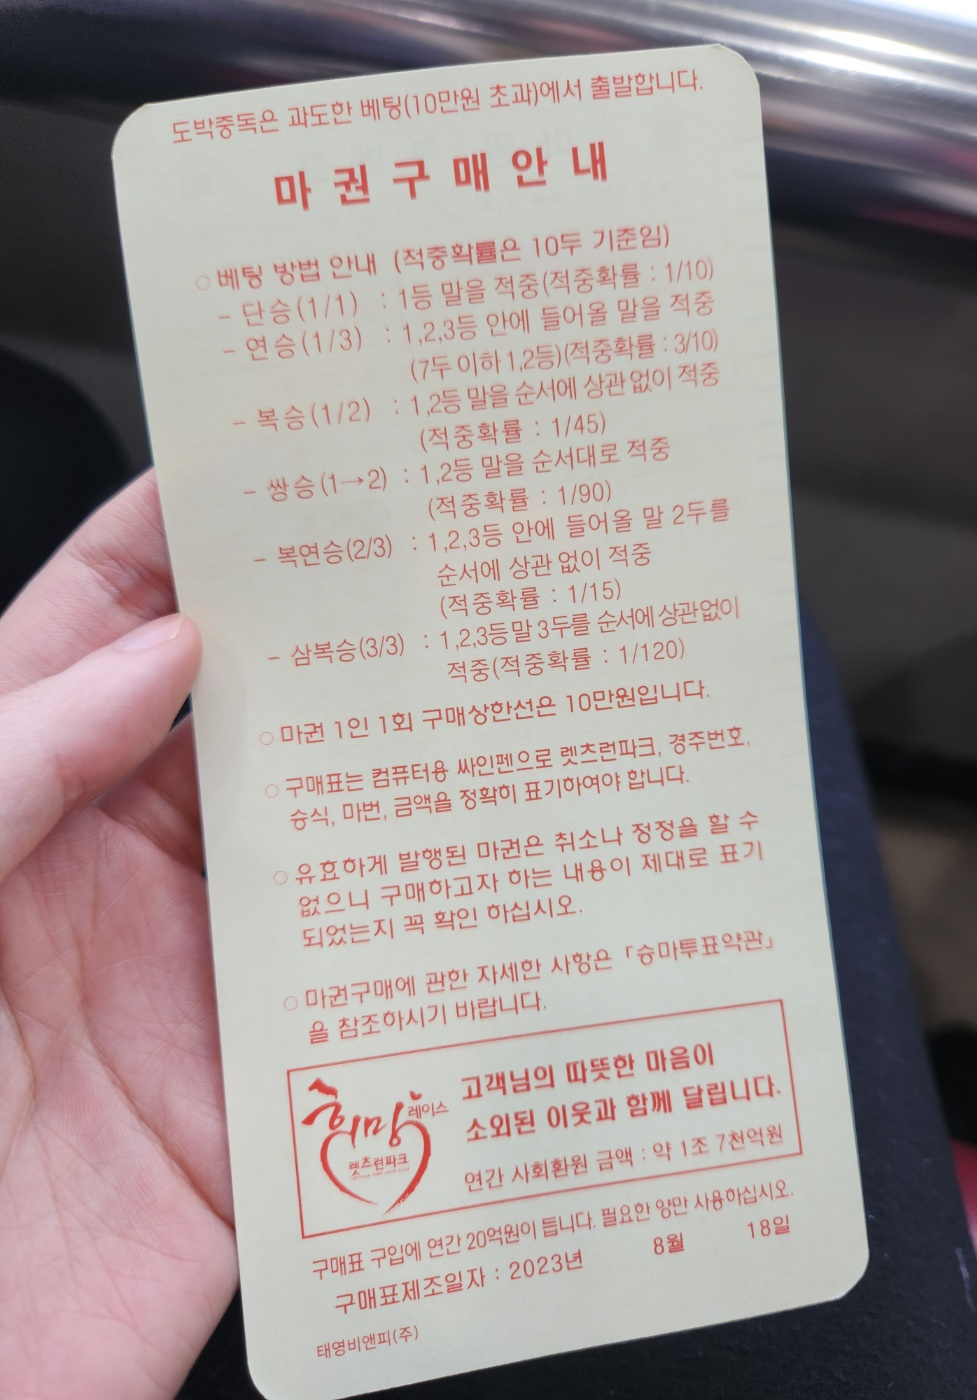 도박중독은 과도한 베팅(10만원 초과)에서 출발합니다.
마 권 구 매 안 내
○ 베팅 방법 안내 (적중확률은 10두 기준임)
- 단승(1/1) : 1등 말을 적중(적중확률 : 1/10)
- 연승(1/3) : 1,2,3등 안에 들어올 말을 적중
(7두 이하 1,2등)(적중확률 : 3/10)
- 복승(1/2) : 1,2등 말을 순서에 상관없이 적중
(적중확률 : 1/45)
- 쌍승(1→2) : 1,2등 말을 순서대로 적중
(적중확률 : 1/90)
- 복연승(2/3) : 1,2,3등 안에 들어올 말 2두를
순서에 상관 없이 적중
(적중확률 : 1/15)
- 삼복승(3/3) : 1,2,3등말 3두를 순서에 상관없이
적중(적중확률 : 1/120)
○ 마권 1인 1회 구매상한선은 10만원입니다.
○ 구매표는 컴퓨터용 싸인펜으로 렛츠런파크, 경주번호,
승식, 마번, 금액을 정확히 표기하여야 합니다.
○ 유효하게 발행된 마권은 취소나 정정을 할 수
없으니 구매하고자 하는 내용이 제대로 표기
되었는지 꼭 확인 하십시오.
○ 마권구매에 관한 자세한 사항은 「승마투표약관」
을 참조하시기 바랍니다.
희망 레이스
렛츠런파크
고객님의 따뜻한 마음이
소외된 이웃과 함께 달립니다.
연간 사회환원 금액 : 약 1조 7천억원
구매표 구입에 연간 20억원이 듭니다. 필요한 양만 사용하십시오.
구매표제조일자 : 2023년 8월 18일
태영비앤피(주)